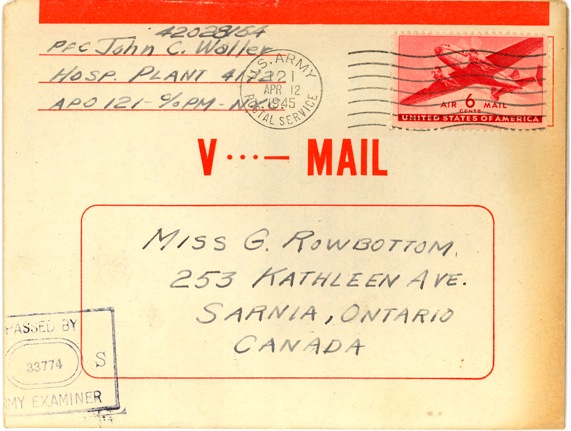 42028164
PFC John C. Waller
HOSP. PLANT 4173
APO 121 - c/o PM - N.Y.
U.S. ARMY
121
APR 12
1945
POSTAL SERVICE
AIR 6 MAIL
CENTS
UNITED STATES OF AMERICA
V ···— MAIL
MISS G. ROWBOTTOM.
253 KATHLEEN AVE.
SARNIA, ONTARIO
CANADA
PASSED BY
33774 S
ARMY EXAMINER